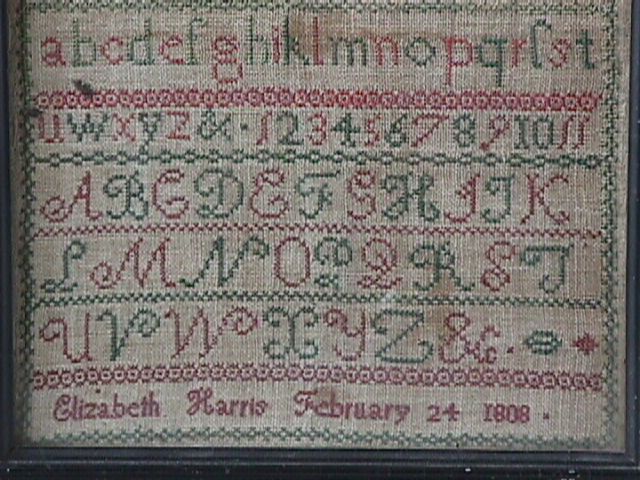 a b c d e f g h i k l m n o p q r ſ s t
u w x y z & · 1 2 3 4 5 6 7 8 9 10 11
A B C D E F G H I J K
L M N O P Q R S T
U V W X Y Z &c.
Elizabeth Harris February 24 1808 .